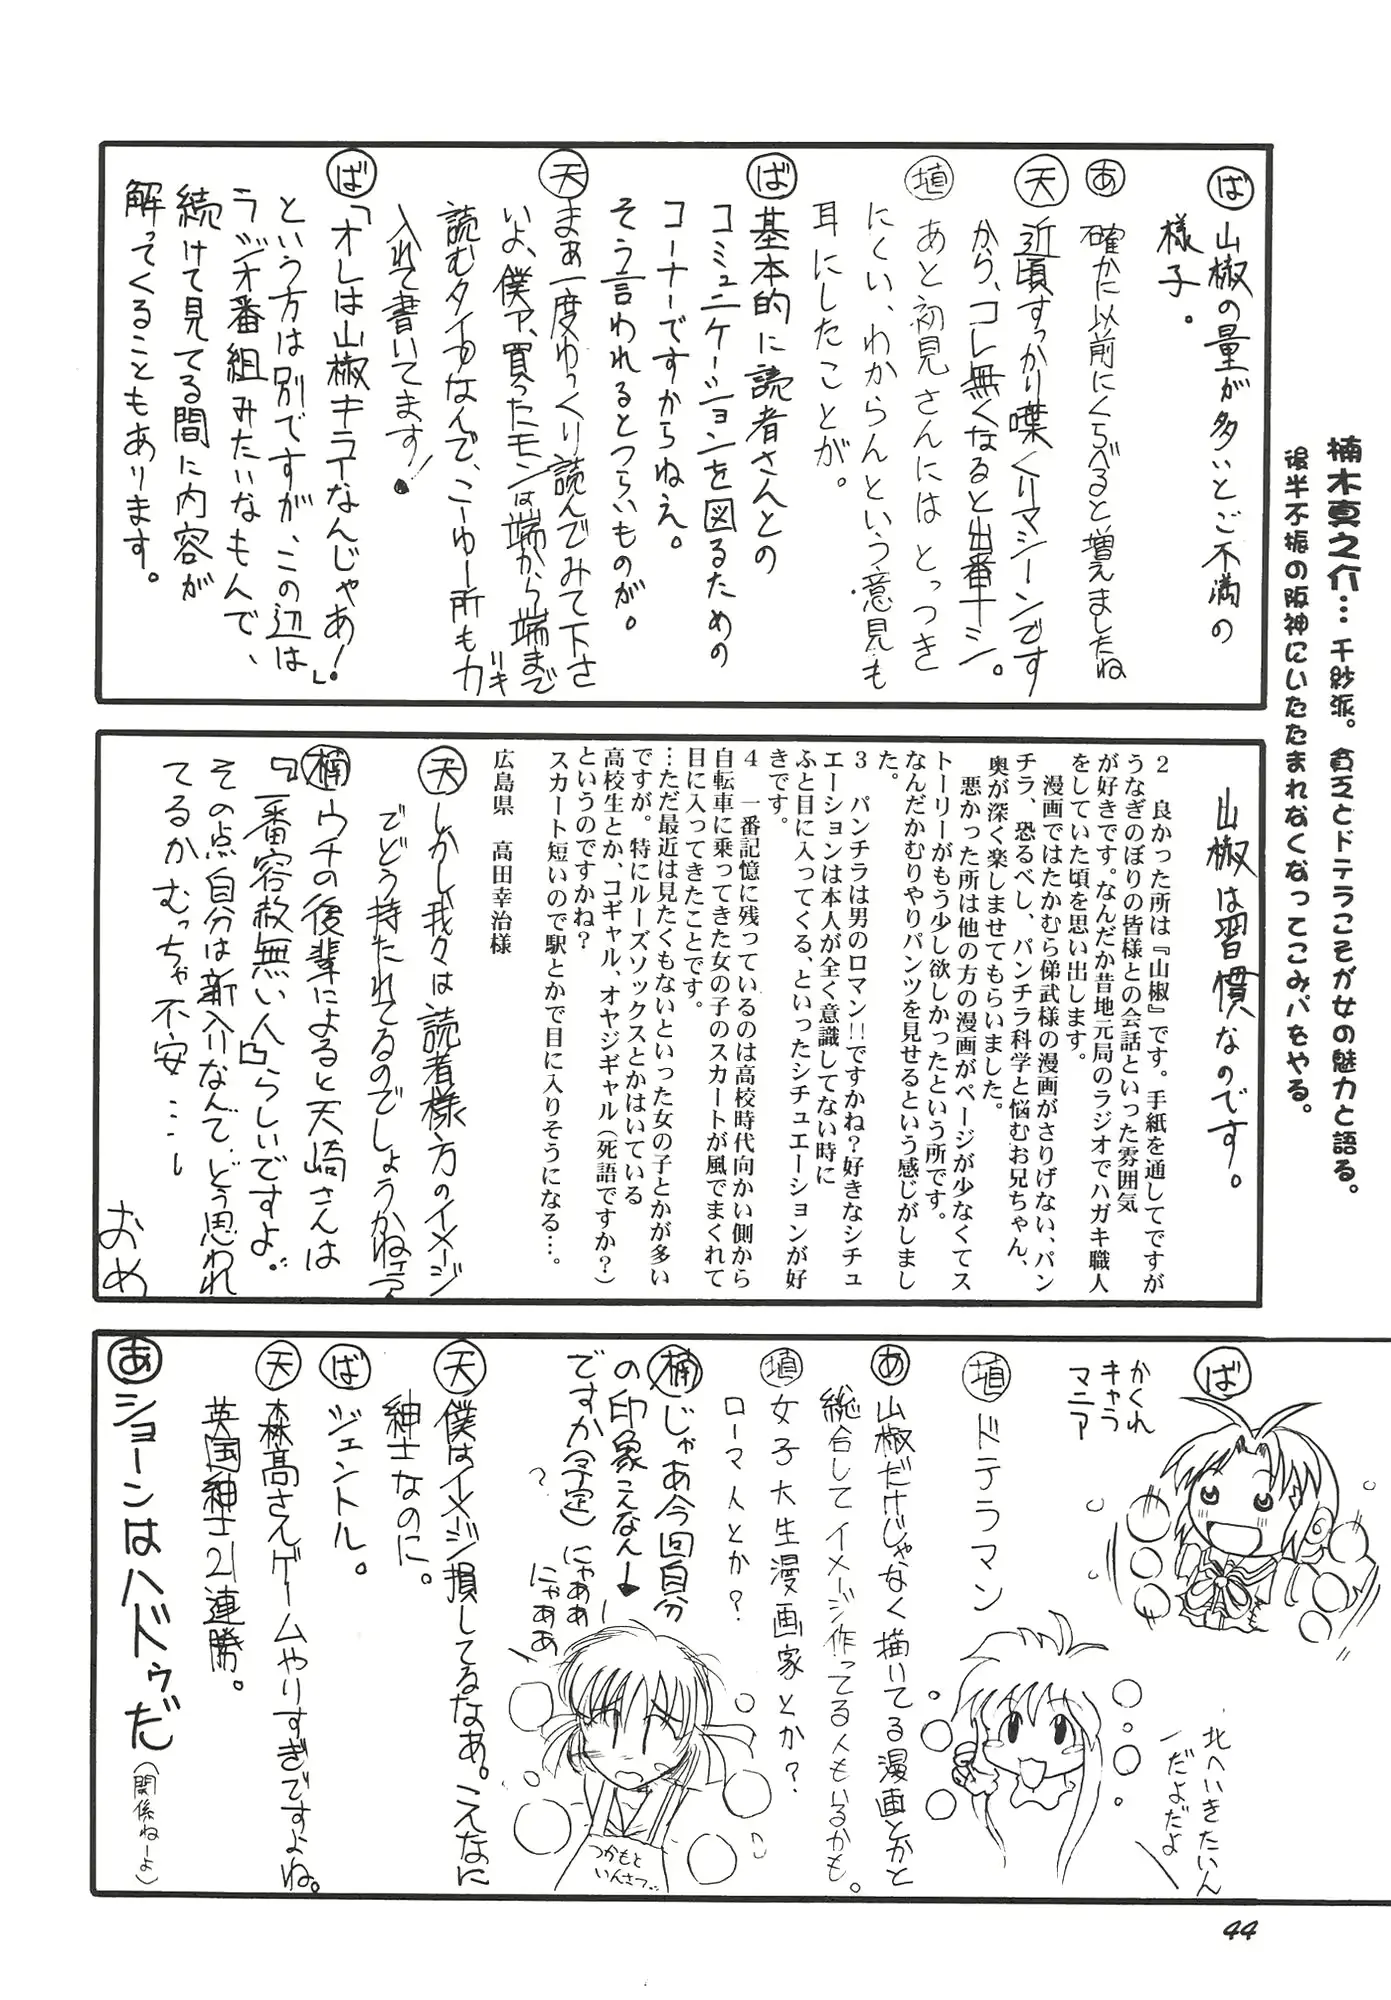 楠木真之介…千紗派。貧乏とドテラこそが女の魅力と語る。
後半不振の阪神にいたたまれなくなってこみパをやる。
ば 山椒の量が多いとご不満の
様子。
あ 確かに以前にくらべると増えましたね
天 近頃すっかり喋くりマシーンです
から、コレ無くなると出番ナシ。
埴 あと初見さんにはとっつき
にくい、わからんという意見も
耳にしたことが。
ば 基本的に読者さんとの
コミュニケーションを図るための
コーナーですからねえ。
そう言われるとつらいものが。
天 まぁ一度ゆっくり読んでみて下さ
いよ、僕ァ、買ったモンは端から端まで
読むタイプなんで、こーゆー所も力
リキ
入れて書いてます!
ば 「オレは山椒キライなんじゃあ!」
という方は別ですが、この辺は
ラジオ番組みたいなもんで、
続けて見てる間に内容が
解ってくることもあります。
山椒は習慣なのです。
2 良かった所は『山椒』です。手紙を通してですが
うなぎのぼりの皆様との会話といった雰囲気
が好きです。なんだか昔地元局のラジオでハガキ職人
をしていた頃を思い出します。
漫画ではたかむら俤武様の漫画がさりげない、パン
チラ、恐るべし、パンチラ科学と悩むお兄ちゃん、
奥が深く楽しませてもらいました。
悪かった所は他の方の漫画がページが少なくてス
トーリーがもう少し欲しかったという所です。
なんだかむりやりパンツを見せるという感じがしまし
た。
3 パンチラは男のロマン!!ですかね?好きなシチュ
エーションは本人が全く意識してない時に
ふと目に入ってくる、といったシチュエーションが好
きです。
4 一番記憶に残っているのは高校時代向かい側から
自転車に乗ってきた女の子のスカートが風でまくれて
目に入ってきたことです。
…ただ最近は見たくもないといった女の子とかが多い
ですが。特にルーズソックスとかはいている
高校生とか、コギャル、オヤジギャル(死語ですか?)
というのですかね?
スカート短いので駅とかで目に入りそうになる…。
広島県 高田幸治様
天 しかし我々は読者様方のイメージ
でどう持たれてるのでしょうかねェ?
楠 ウチの後輩によると天崎さんは
『一番容赦無い人』らしいですよ。
その点自分は新入りなんで、どう思われ
てるかむっちゃ不安……
おめ
ば
かくれ
キャラ
マニア
埴 ドテラマン
北へいきたいん
だよだよ
あ 山椒だけじゃなく描いてる漫画とかと
総合してイメージ作ってる人もいるかも。
埴 女子大生漫画家とか?
ローマ人とか?
楠 じゃあ今回自分
の印象こんなん
ですか(予定)
?
にゃああ
にゃああ
つかもと
いんさつ
天 僕はイメージ損してるなあ。こんなに
紳士なのに。
ば ジェントル。
天 森高さんゲームやりすぎですよね。
英国紳士21連勝。
あ ショーンはハドゥだ
(関係ねーよ)
44